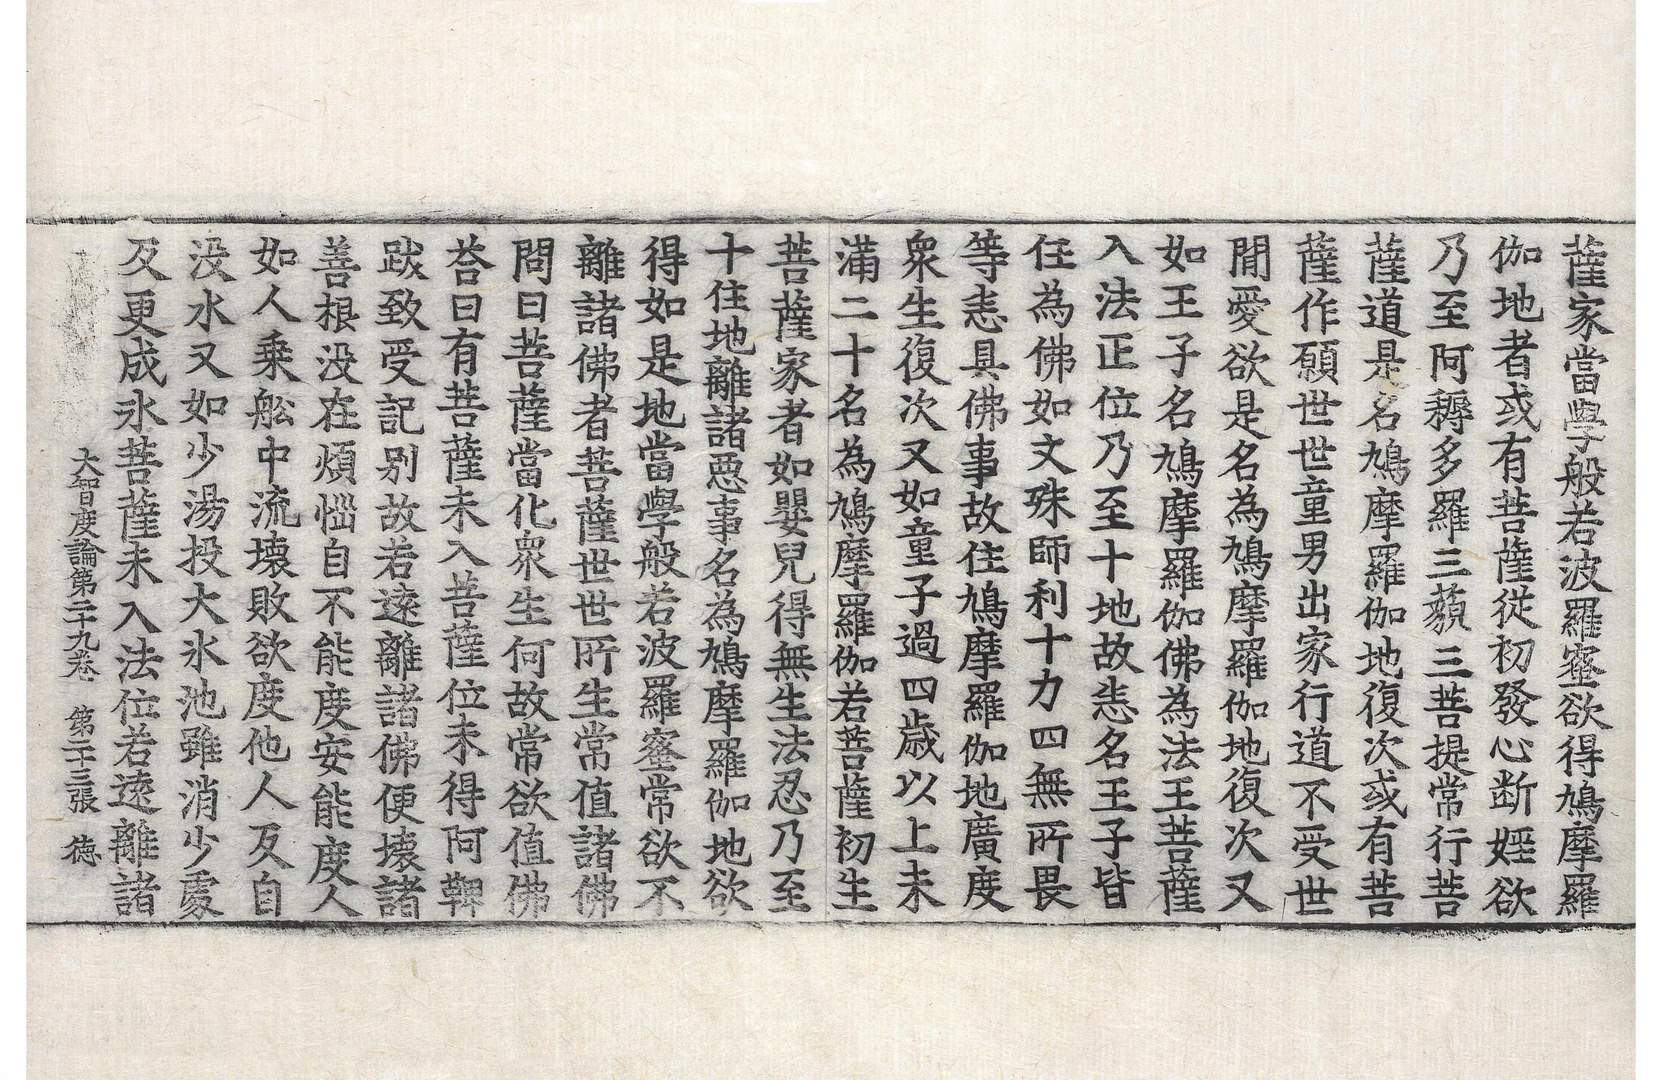 薩家當學般若波羅蜜欲得鳩摩羅
伽地者或有菩薩從初發心斷婬欲
乃至阿耨多羅三藐三菩提常行菩
薩道是名鳩摩羅伽地復次或有菩
薩作願世世童男出家行道不受世
閒愛欲是名為鳩摩羅伽地復次又
如王子名鳩摩羅伽佛為法王菩薩
入法正位乃至十地故恚名王子皆
任為佛如文殊師利十力四無所畏
等恚具佛事故住鳩摩羅伽地廣度
衆生復次又如童子過四歲以上未
滿二十名為鳩摩羅伽若菩薩初生
菩薩家者如嬰兒得無生法忍乃至
十住地離諸惡事名為鳩摩羅伽地欲
得如是地當學般若波羅蜜常欲不
離諸佛者菩薩世世所生常值諸佛
問曰菩薩當化衆生何故常欲值佛
荅曰有菩薩未入菩薩位未得阿鞞
跋致受記別故若遠離諸佛便壞諸
善根没在煩惱自不能度安能度人
如人乘舩中流壞敗欲度他人反自
没水又如少湯投大氷池雖消少處
反更成氷菩薩未入法位若遠離諸
大智度論第二十九卷 第二十三張 德